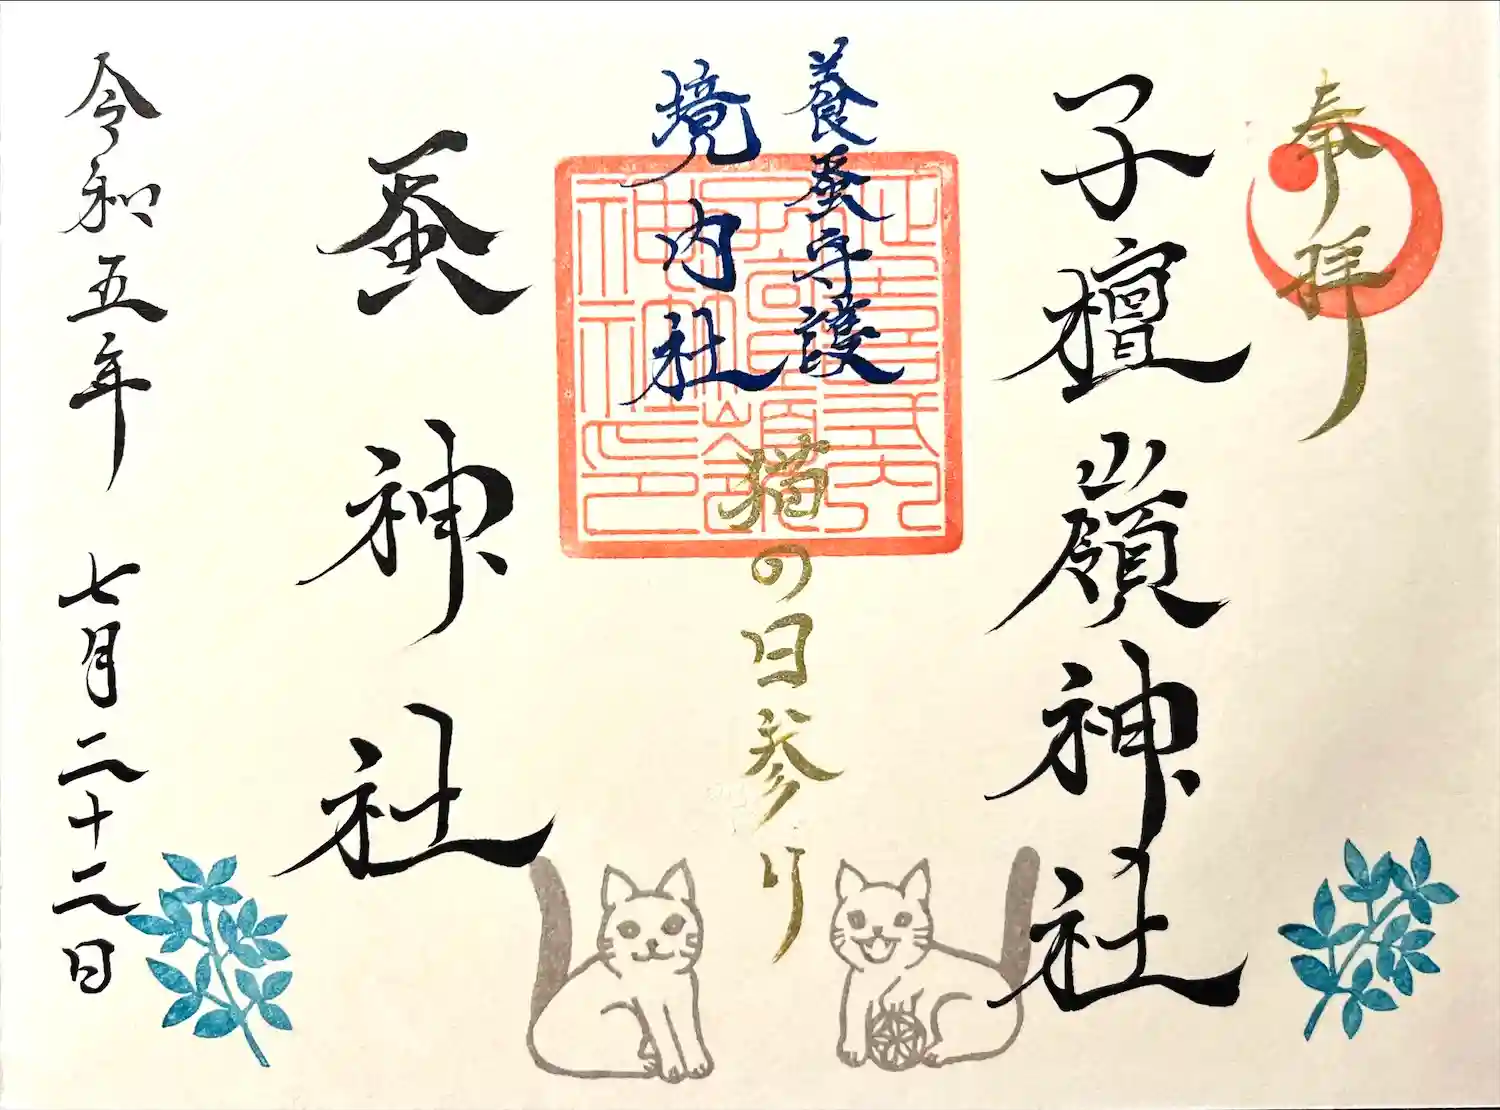 奉拝
子檀嶺神社
養蚕守護
境内社
猫の日参り
蚕神社
令和五年 七月二十二日